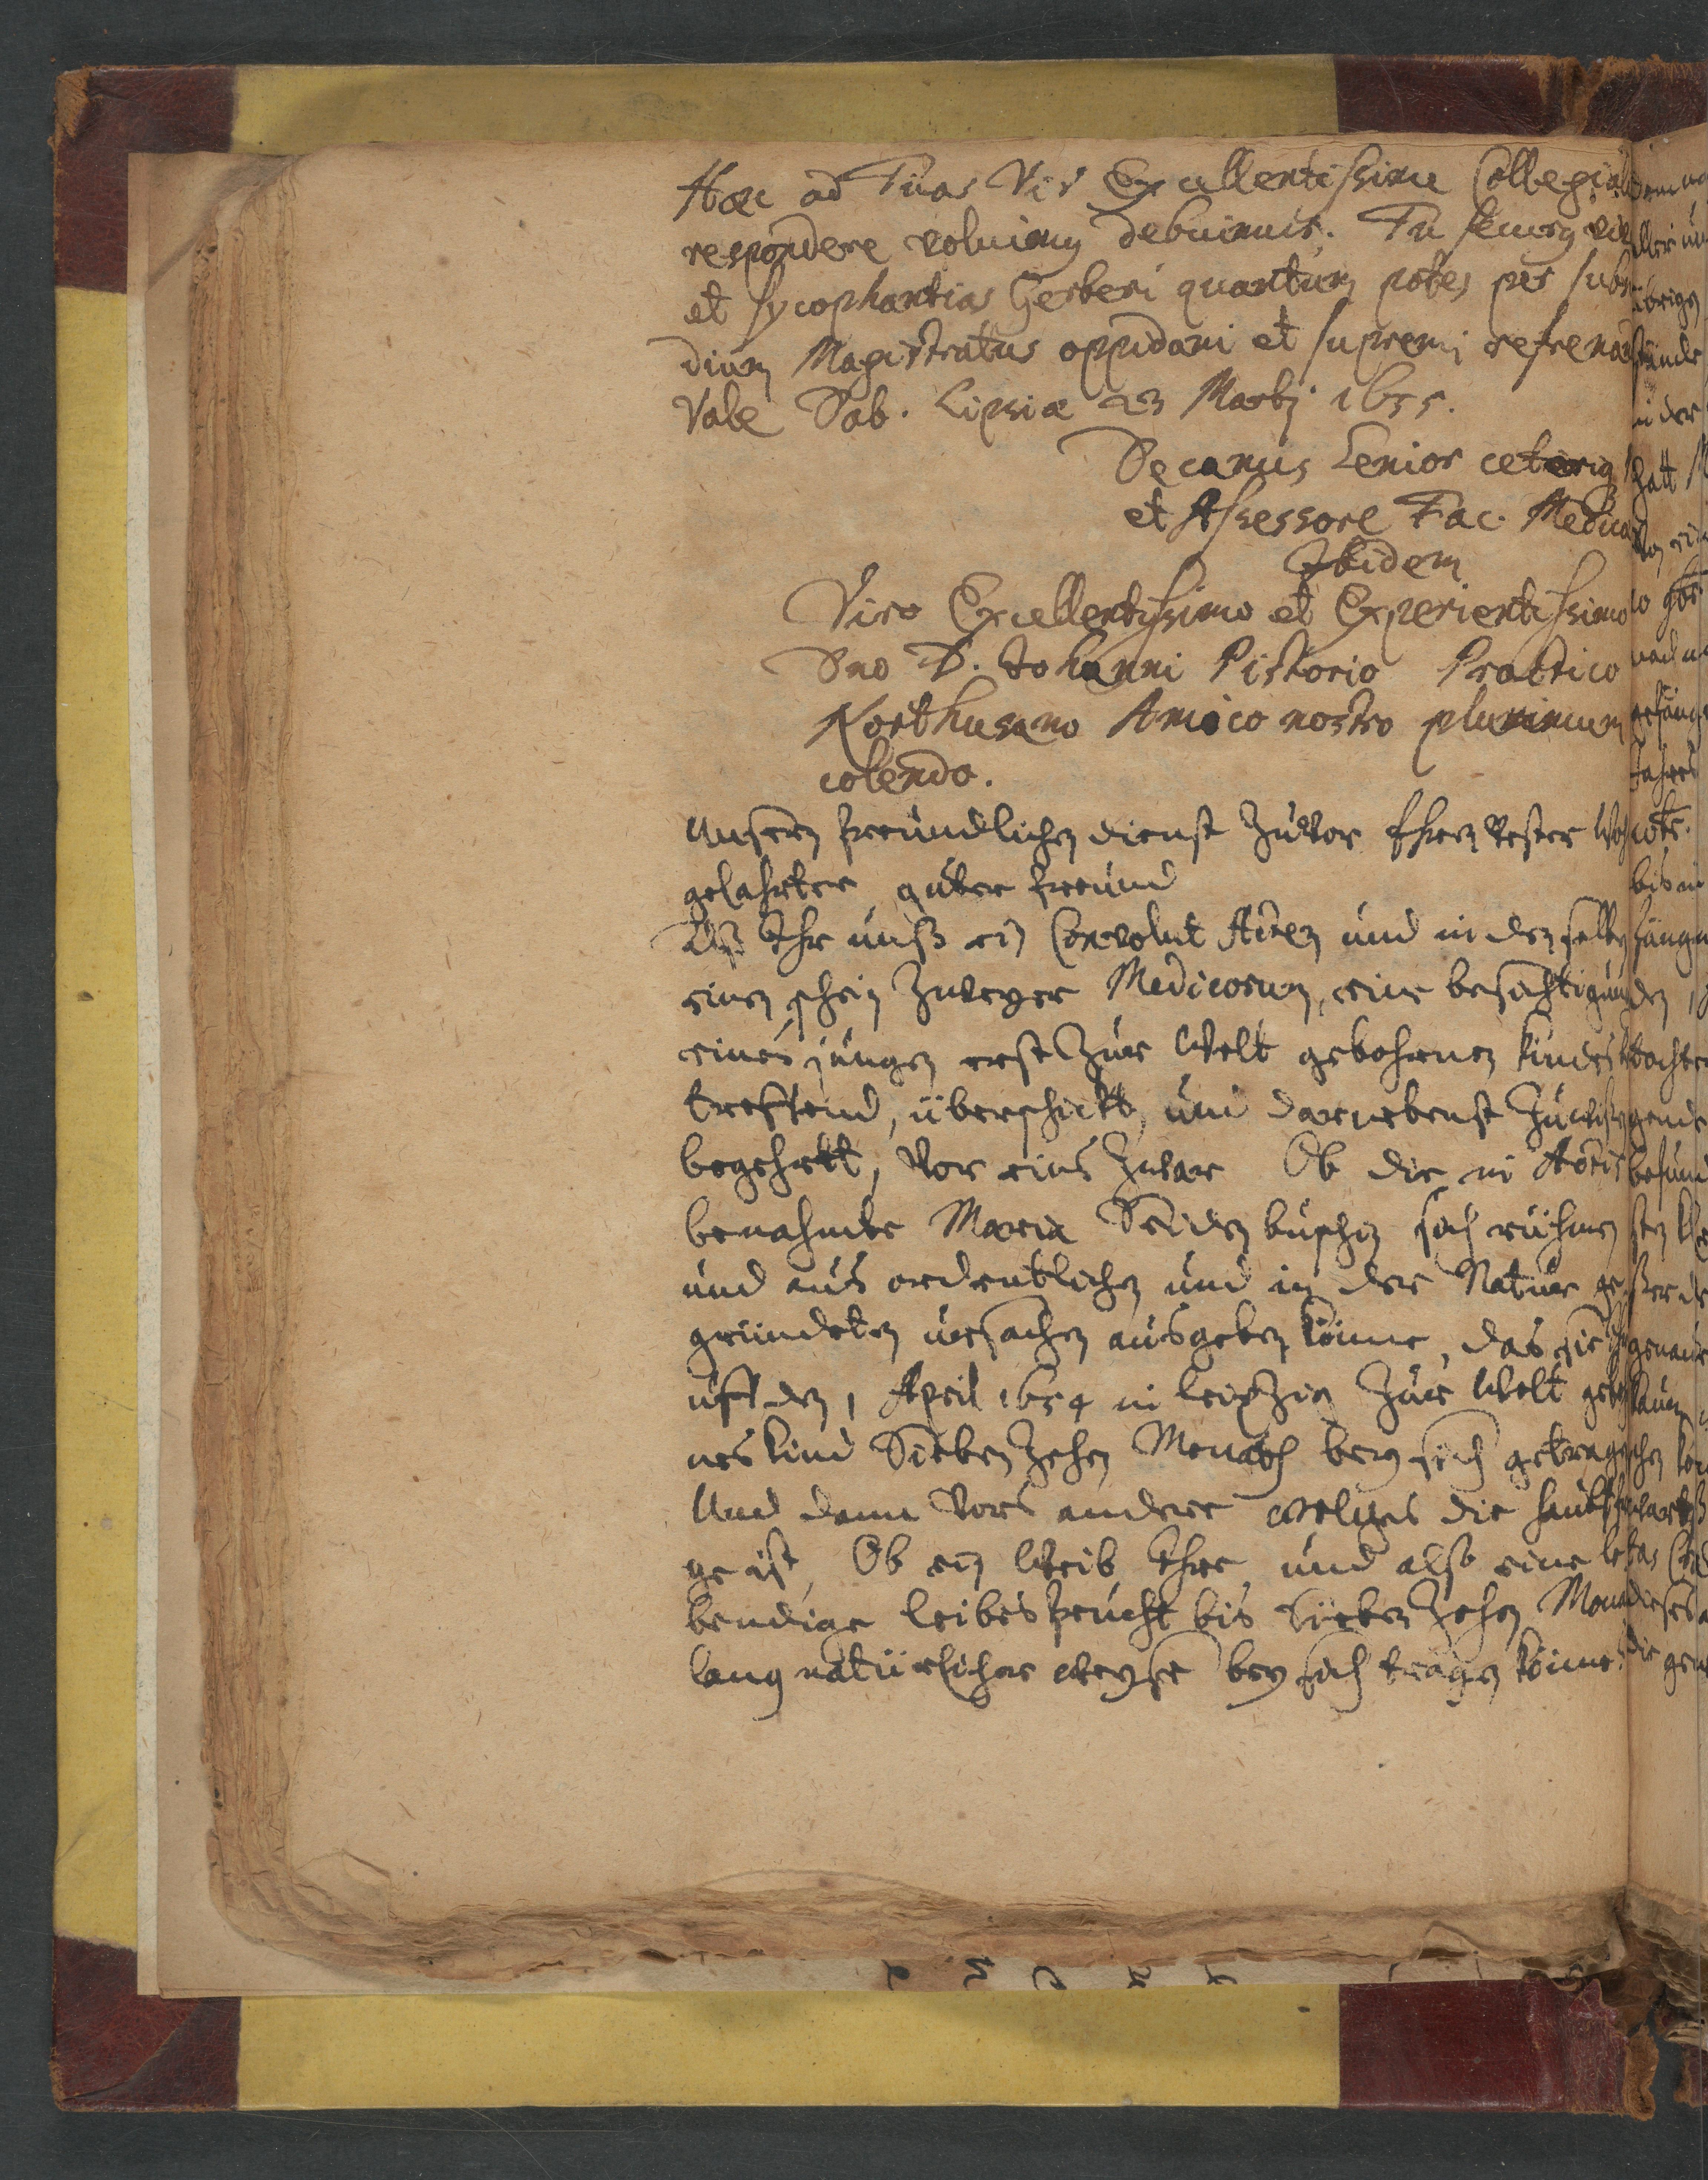 Hæc ad Tuas Vir Excellentissime Collegia
respondere voluimus debuimus. Tu secus
et sycophantias Gerberi quantum potes per subsi
dium Magistratus oppidani et supremi refrena
Vale Dab. Lipsiæ 23 Martij 1655.
Decanus Senior ceteriq
et Assessore Fac. Medica
Ibidem
Viro Excellentissimo et Experientissimo
Dno D. Johanni Pistorio Practico
Northusano Amico nostro plurimum
colendo.
Unsern freundlichen dienst Zuvor Ehren Vester Wohl
gelahrter guter freund
Alß Ihr unß ein Convolut Acten und in denselben
einen schein Zweyer Medicorum, eine besichtigung
eines jungen erst Zur Welt gebohrnen Kindes be
treffend, überschickt, und darnebenst Zuwissen
begehrtt, Vor eins Zwar Ob die in Actis
benahmte Maria Seidenbuschin sich rühmen
und aus ordentlichen und in der Natur ge
gründeten ursachen ausgeben könne, das sie ihr
uff den 1 April 1654 in Leipzig Zur Welt gebohr
nes Kind Siebenzehen Monath bey sich getragen
Und dann Vors andere welches die haubtfra
ge ist, Ob ein Weib Ihre und also eine le
bendige leibesfrucht bis Siebenzehen Mona
lang natürlicher weyse bey sich tragen könne